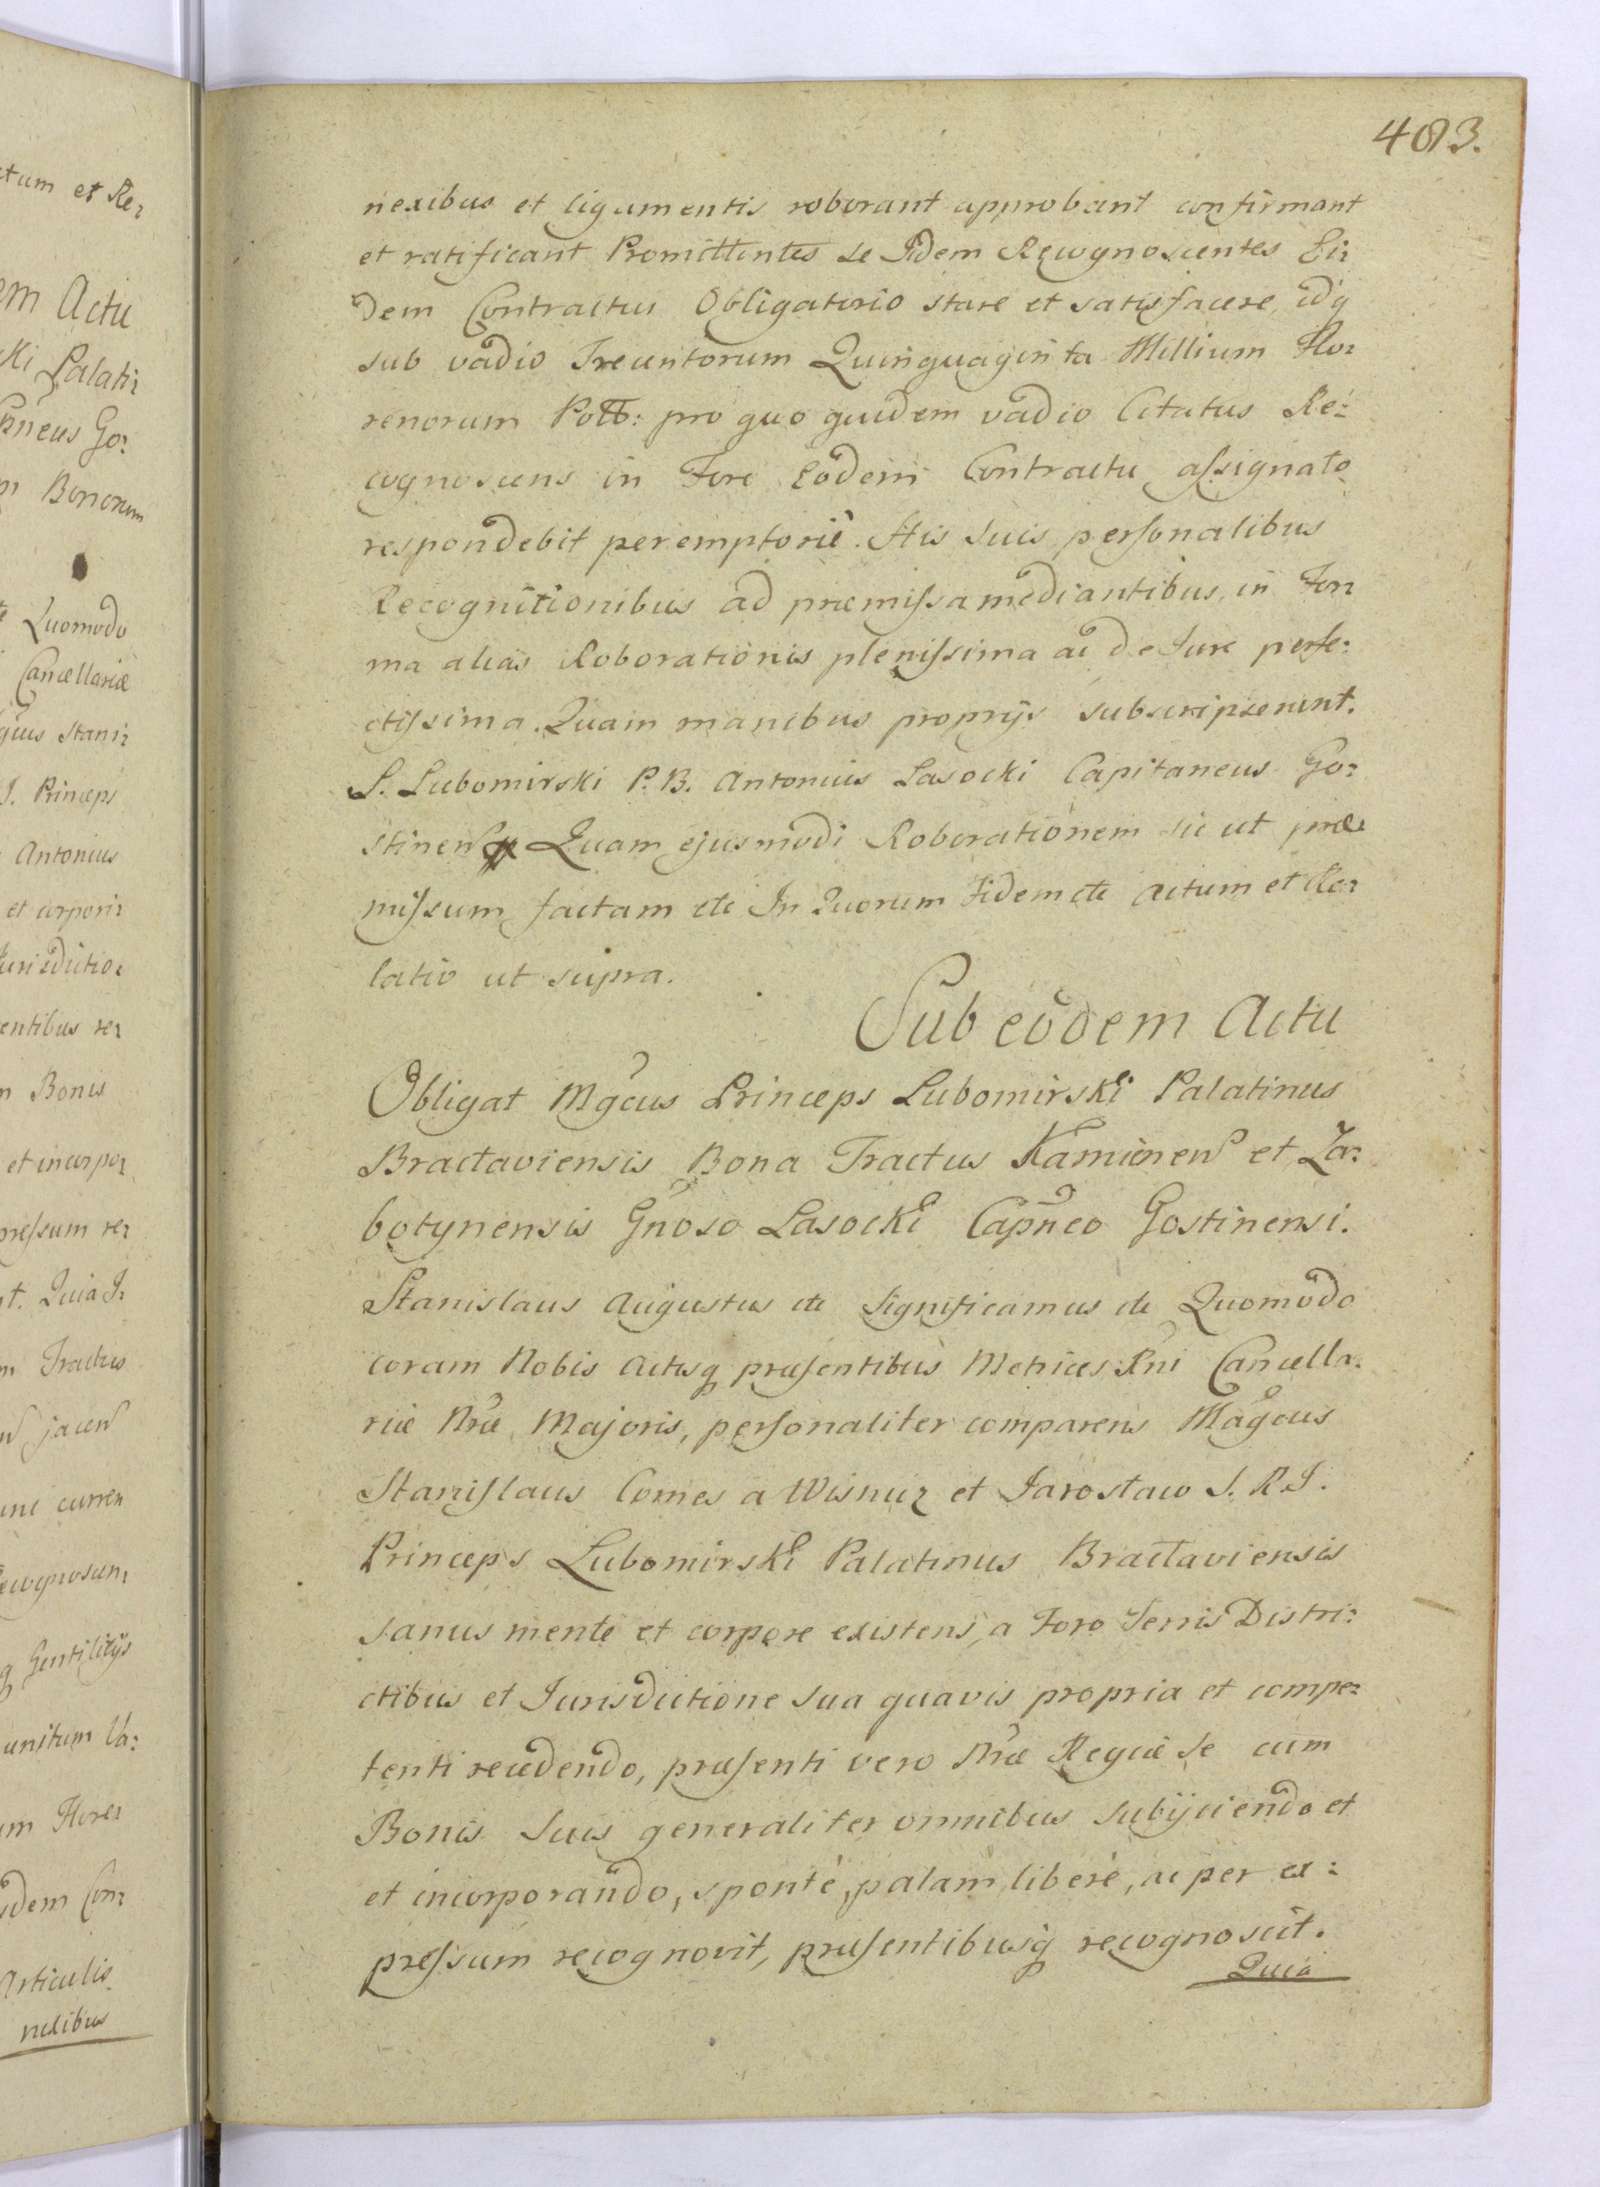 483.
nexibus et ligamentis roborant approbant confirmant
et ratificant Promittentes se Iidem Recognoscentes Ei:
dem Contractui Obligatorio stare et satisfacere, idq
sub vadio Trecentorum Quinquaginta Millium Flo:
renorum Poll: pro quo quidem vadio Citatus Re:
cognoscens in Foro Eodem Contractu assignato
respondebit peremptorie. His suis personalibus
Recognitionibus ad præmissa mediantibus, in For:
ma alias Roborationis plenissima ac de Jure perfe:
ctissima. Quam manibus proprijs subscripserunt.
S. Lubomirski P. B. Antonius Lasocki Capitaneus Go:
stinen Quam ejusmodi Roborationem sic ut præ:
missum factam etc In Quorum Fidem etc Actum et Re:
latio ut supra.
Sub eodem Actu
Obligat Mgcus Princeps Lubomirski Palatinus
Braclaviensis Bona Tractus Kamienen et Za:
botynensis Gnoso Lasocki Capneo Gostinensi.
Stanislaus Augustus etc Significamus etc Quomodo
coram Nobis Actisq præsentibus Metrices Rni Cancella:
riæ Nræ Majoris, personaliter comparens Magcus
Stanislaus Comes a Wisnicz et Jarosław S. R. I.
Princeps Lubomirski Palatinus Braclaviensis
sanus mente et corpore existens, a Foro Terris Distri:
ctibus et Jurisdictione sua quavis propria et compe:
tenti recedendo, præsenti vero Nræ Regiæ se cum
Bonis suis generaliter omnibus subijciendo et
et incorporando, sponte, palam, libere, ac per ex:
pressum recognovit, præsentibusq recognoscit.
Quia